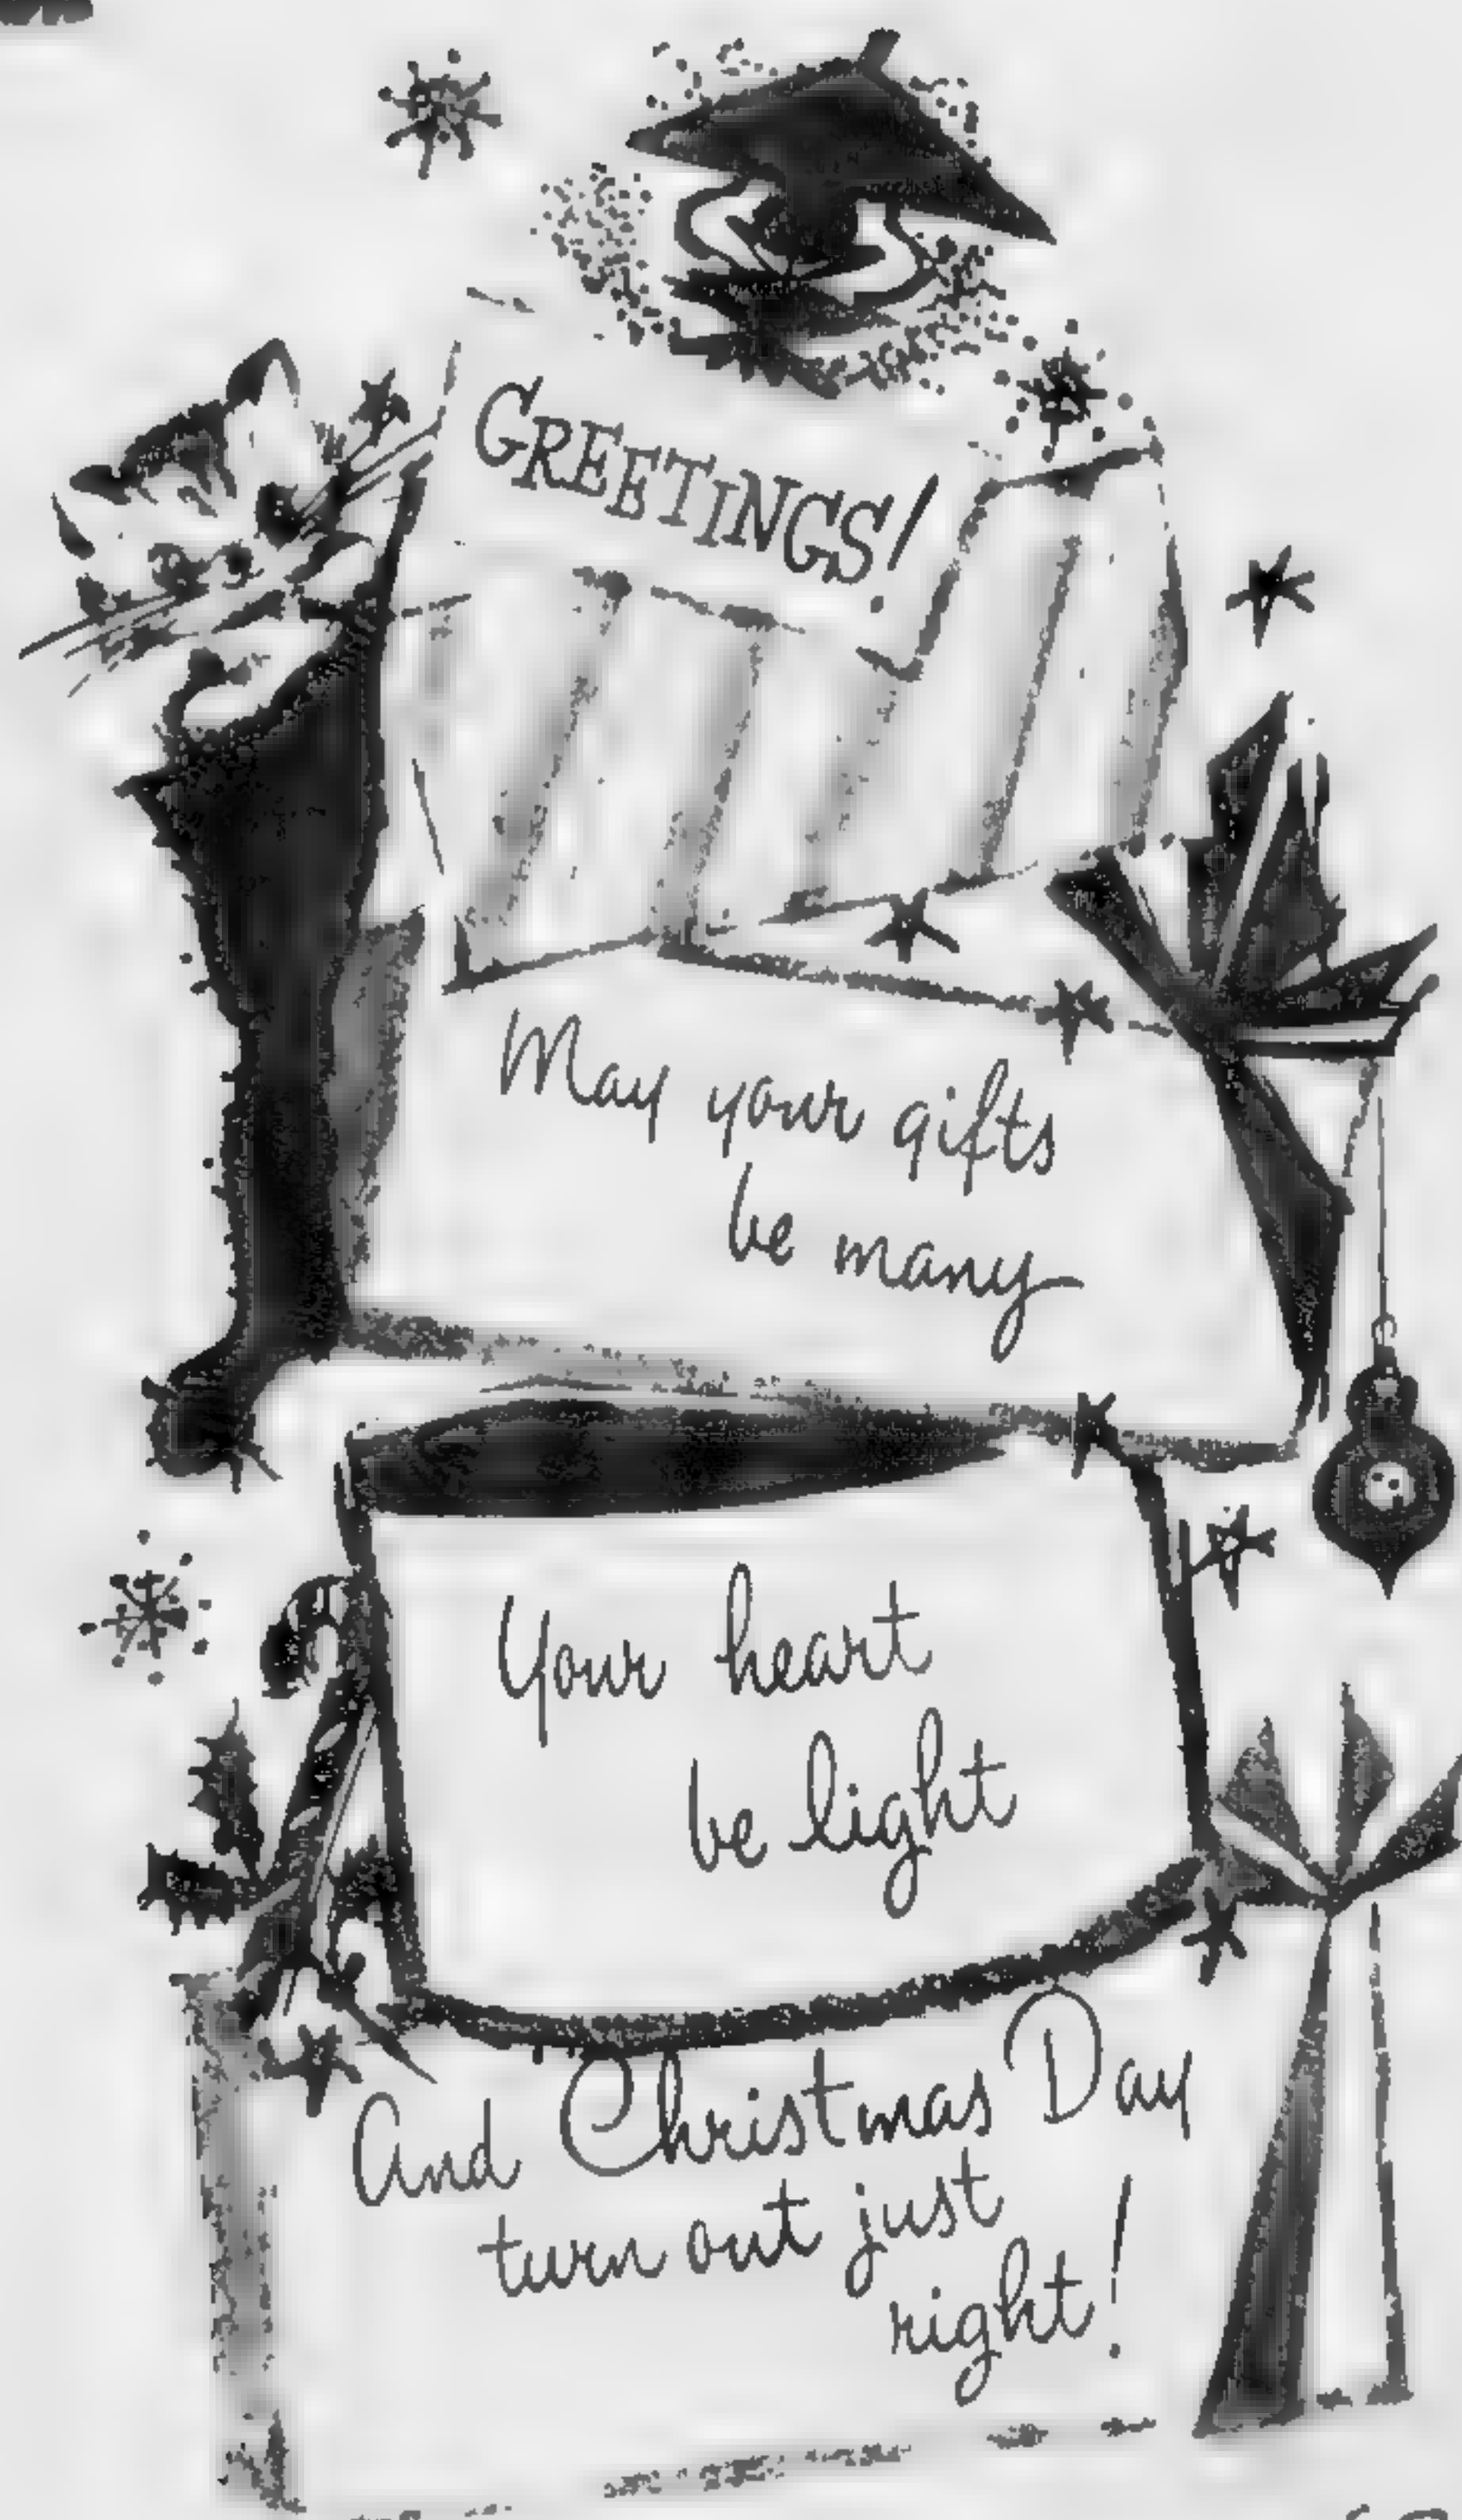 GREETINGS!
May your gifts
be many
Your heart
be light
And Christmas Day
turn out just
right!